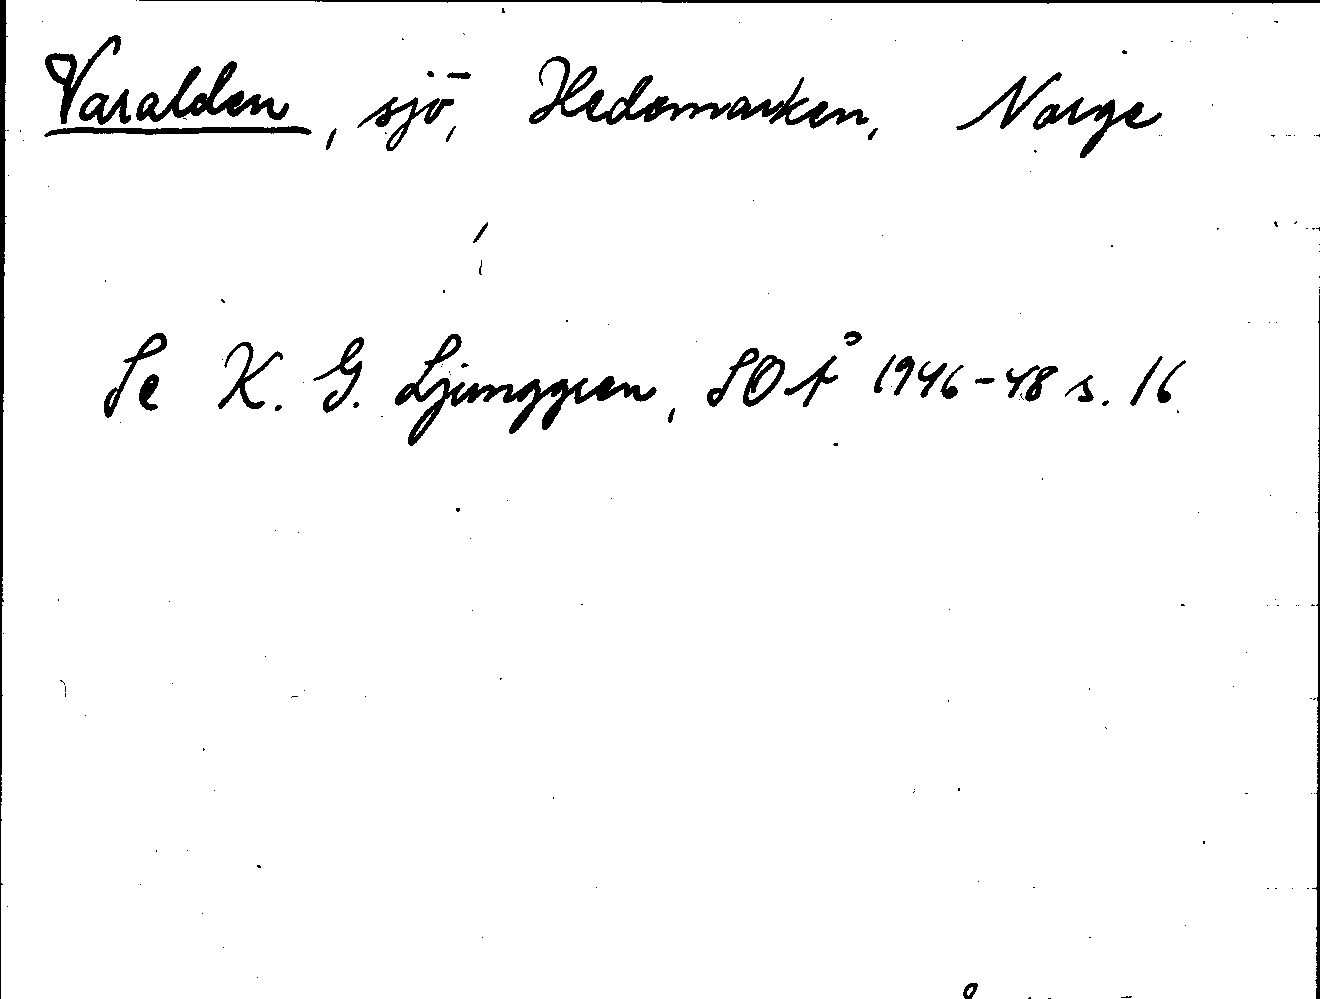 Varalden, sjö, Hedemarken, Norge
Se K. G. Ljunggren, SOÅ 1946-48 s. 16